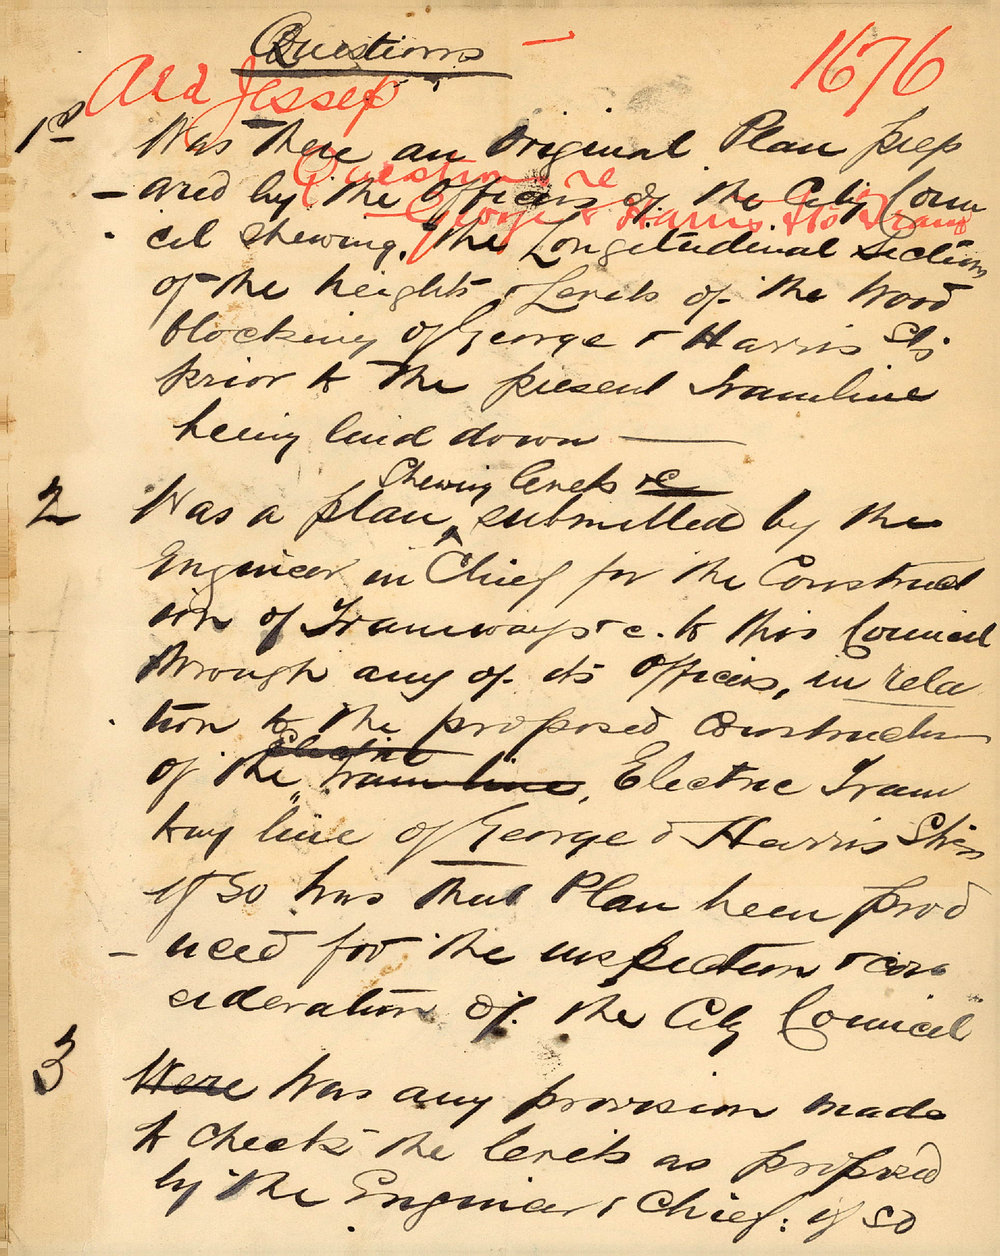 Questions
1676
Ald Jessep
Question re
George & Harris Sts Trams
1st Was there an original Plan prep
- ared by the Officers of the City Coun
cil shewing, the Longitudinal Sections
of the heights & Levels of the Wood
blocking of George & Harris Sts
prior to the present Tramline
being laid down —
Shewing levels &c
2 Was a plan ^ submitted by the
Engineer in Chief for the Construct
ion of Tramways &c. to this Council
through any of its Officers, in rela
tion to the proposed Construction
Electric
of the Tram line, Electric Tram
way line of George & Harris Streets
if so has that Plan been prod
- uced for the inspection & con
sideration of the City Council
3 Were Was any provision made
to check the levels as proposed
by the Engineer & Chief: if so